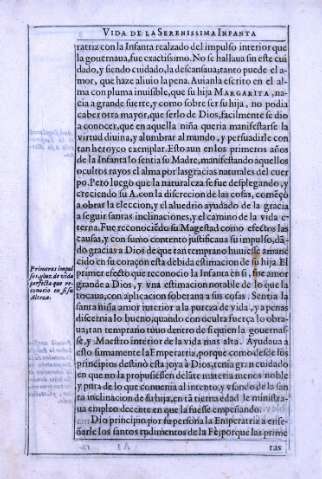 VIDA DE LA SERENISSIMA INFANTA
ratriz con la Infanta realzado del impulso interior que
la gouernaua, fue exactissimo. No se hallaua sin este cui
dado, y siendo cuidado, la descansaua; tanto puede el a-
mor, que haze aliuio la pena. Auianla escrito en el al
ma con pluma inuisible, que su hija MARGARITA, na-
cia a grande suerte, y como sobre ser su hija, no podia
caber otra mayor, que serlo de Dios, facilmente se dio
a conocer, que en aquella niña queria manifestarse la
virtud diuina, y alumbrar al mundo, y persuadirle con
tan heroyco exemplar. Esto aun en los primeros años
de la Infanta lo sentia su Madre, manifestando aquellos
ocultos rayos el alma por las gracias naturales del cuer
po. Pero luego que la naturaleza se fue desplegando, y
creciendo su A. con la discrecion de las cosas, começò
a obrar la eleccion, y el aluedrio ayudado de la gracia
a seguir santas inclinaciones, y el camino de la vida e-
terna. Fue reconociẽdo su Magestad como efectos las
causas, y con sumo contento justificaua su impulso, dã-
do gracias a Dios de que tan temprano huuiesse amane
cido en su coraçon esta debida estimacion de su hija. El
primer efecto que reconocio la Infanta en si, fue amor
grande a Dios, y vna estimacion notable de lo que la
tocaua, con aplicacion soberana a sus cosas. Sentia la
santa niña amor interior a la pureza de vida, y apenas
discernia lo bueno, quando con oculta fuerça lo obra-
ua; tan temprano tuuo dentro de si quien la gouernas-
se, y Maestro interior de la vida mas alta. Ayudaua a
esto sumamente la Emperatriz, porque como desde los
principios destinò esta joya à Dios, tenia grãn cuidado
en que no la propusiessen delãte materia menos noble
y pura de lo que conuenia al intento, y vsando de la san
ta inclinacion de su hija, en tã tierna edad le ministra-
ua empleo decente en que la fuesse empeñando.
Dio principio por su persona la Emperatriz a ense-
ñarle los santos rudimentos de la Fè, porque las prime
ras
Primeros impul
sos q̃ tuuo de vida
perfecta que re-
conocio en si su
Alteza.